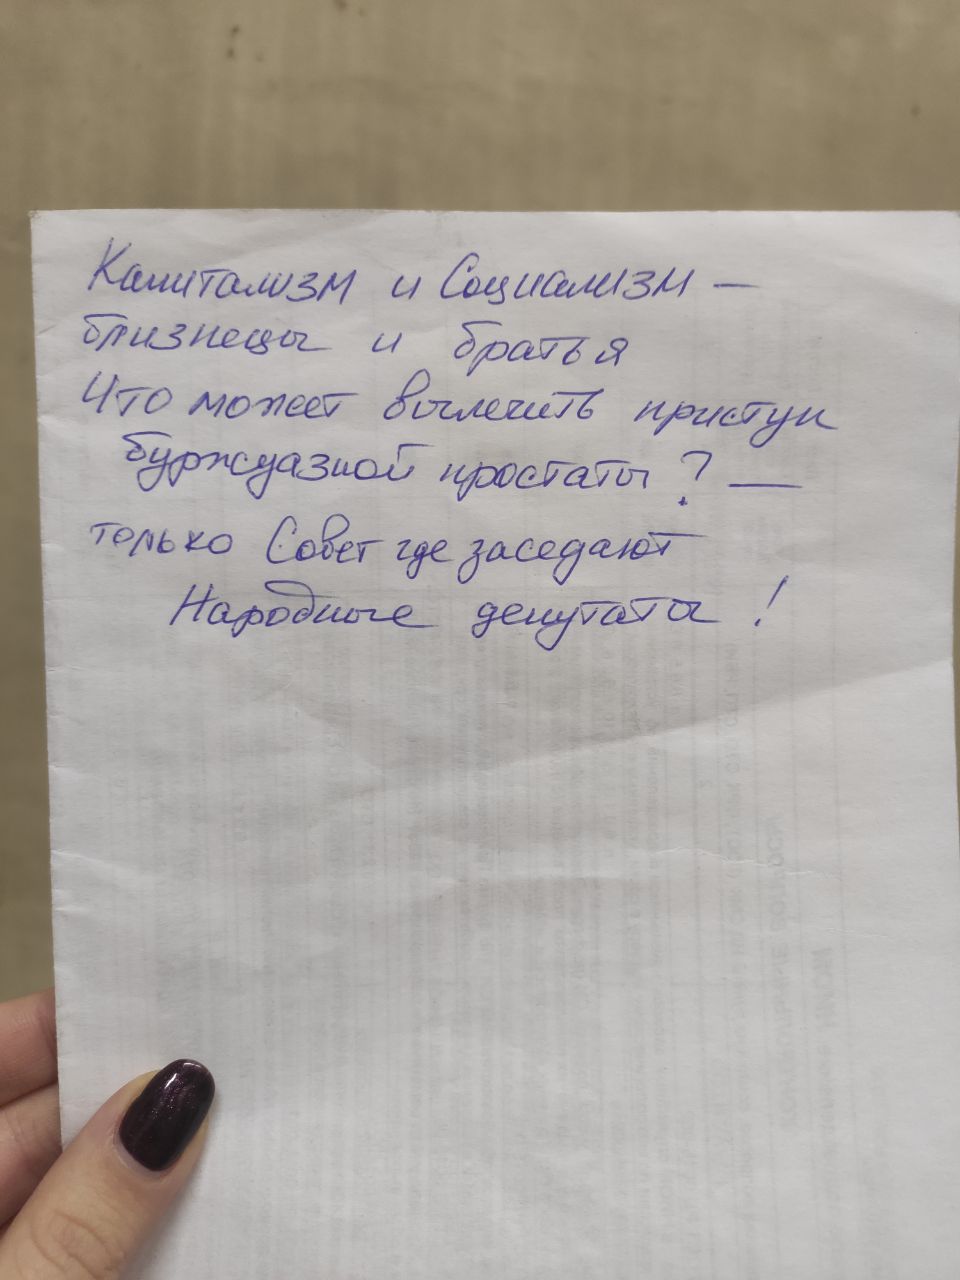 Капитализм и Социализм —
близнецы и братья
Что может вылечить приступ
буржуазной простаты? —
только Совет где заседают
Народные депутаты!